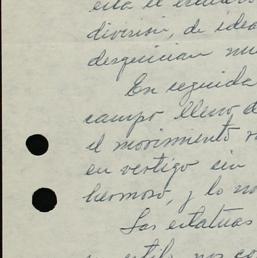 esta el
division, de idea
desquician
En seguida
campo lleno d
el movimiento
en vertigo sin
hermoso, y lo no
Las estatuas
estilo nos co